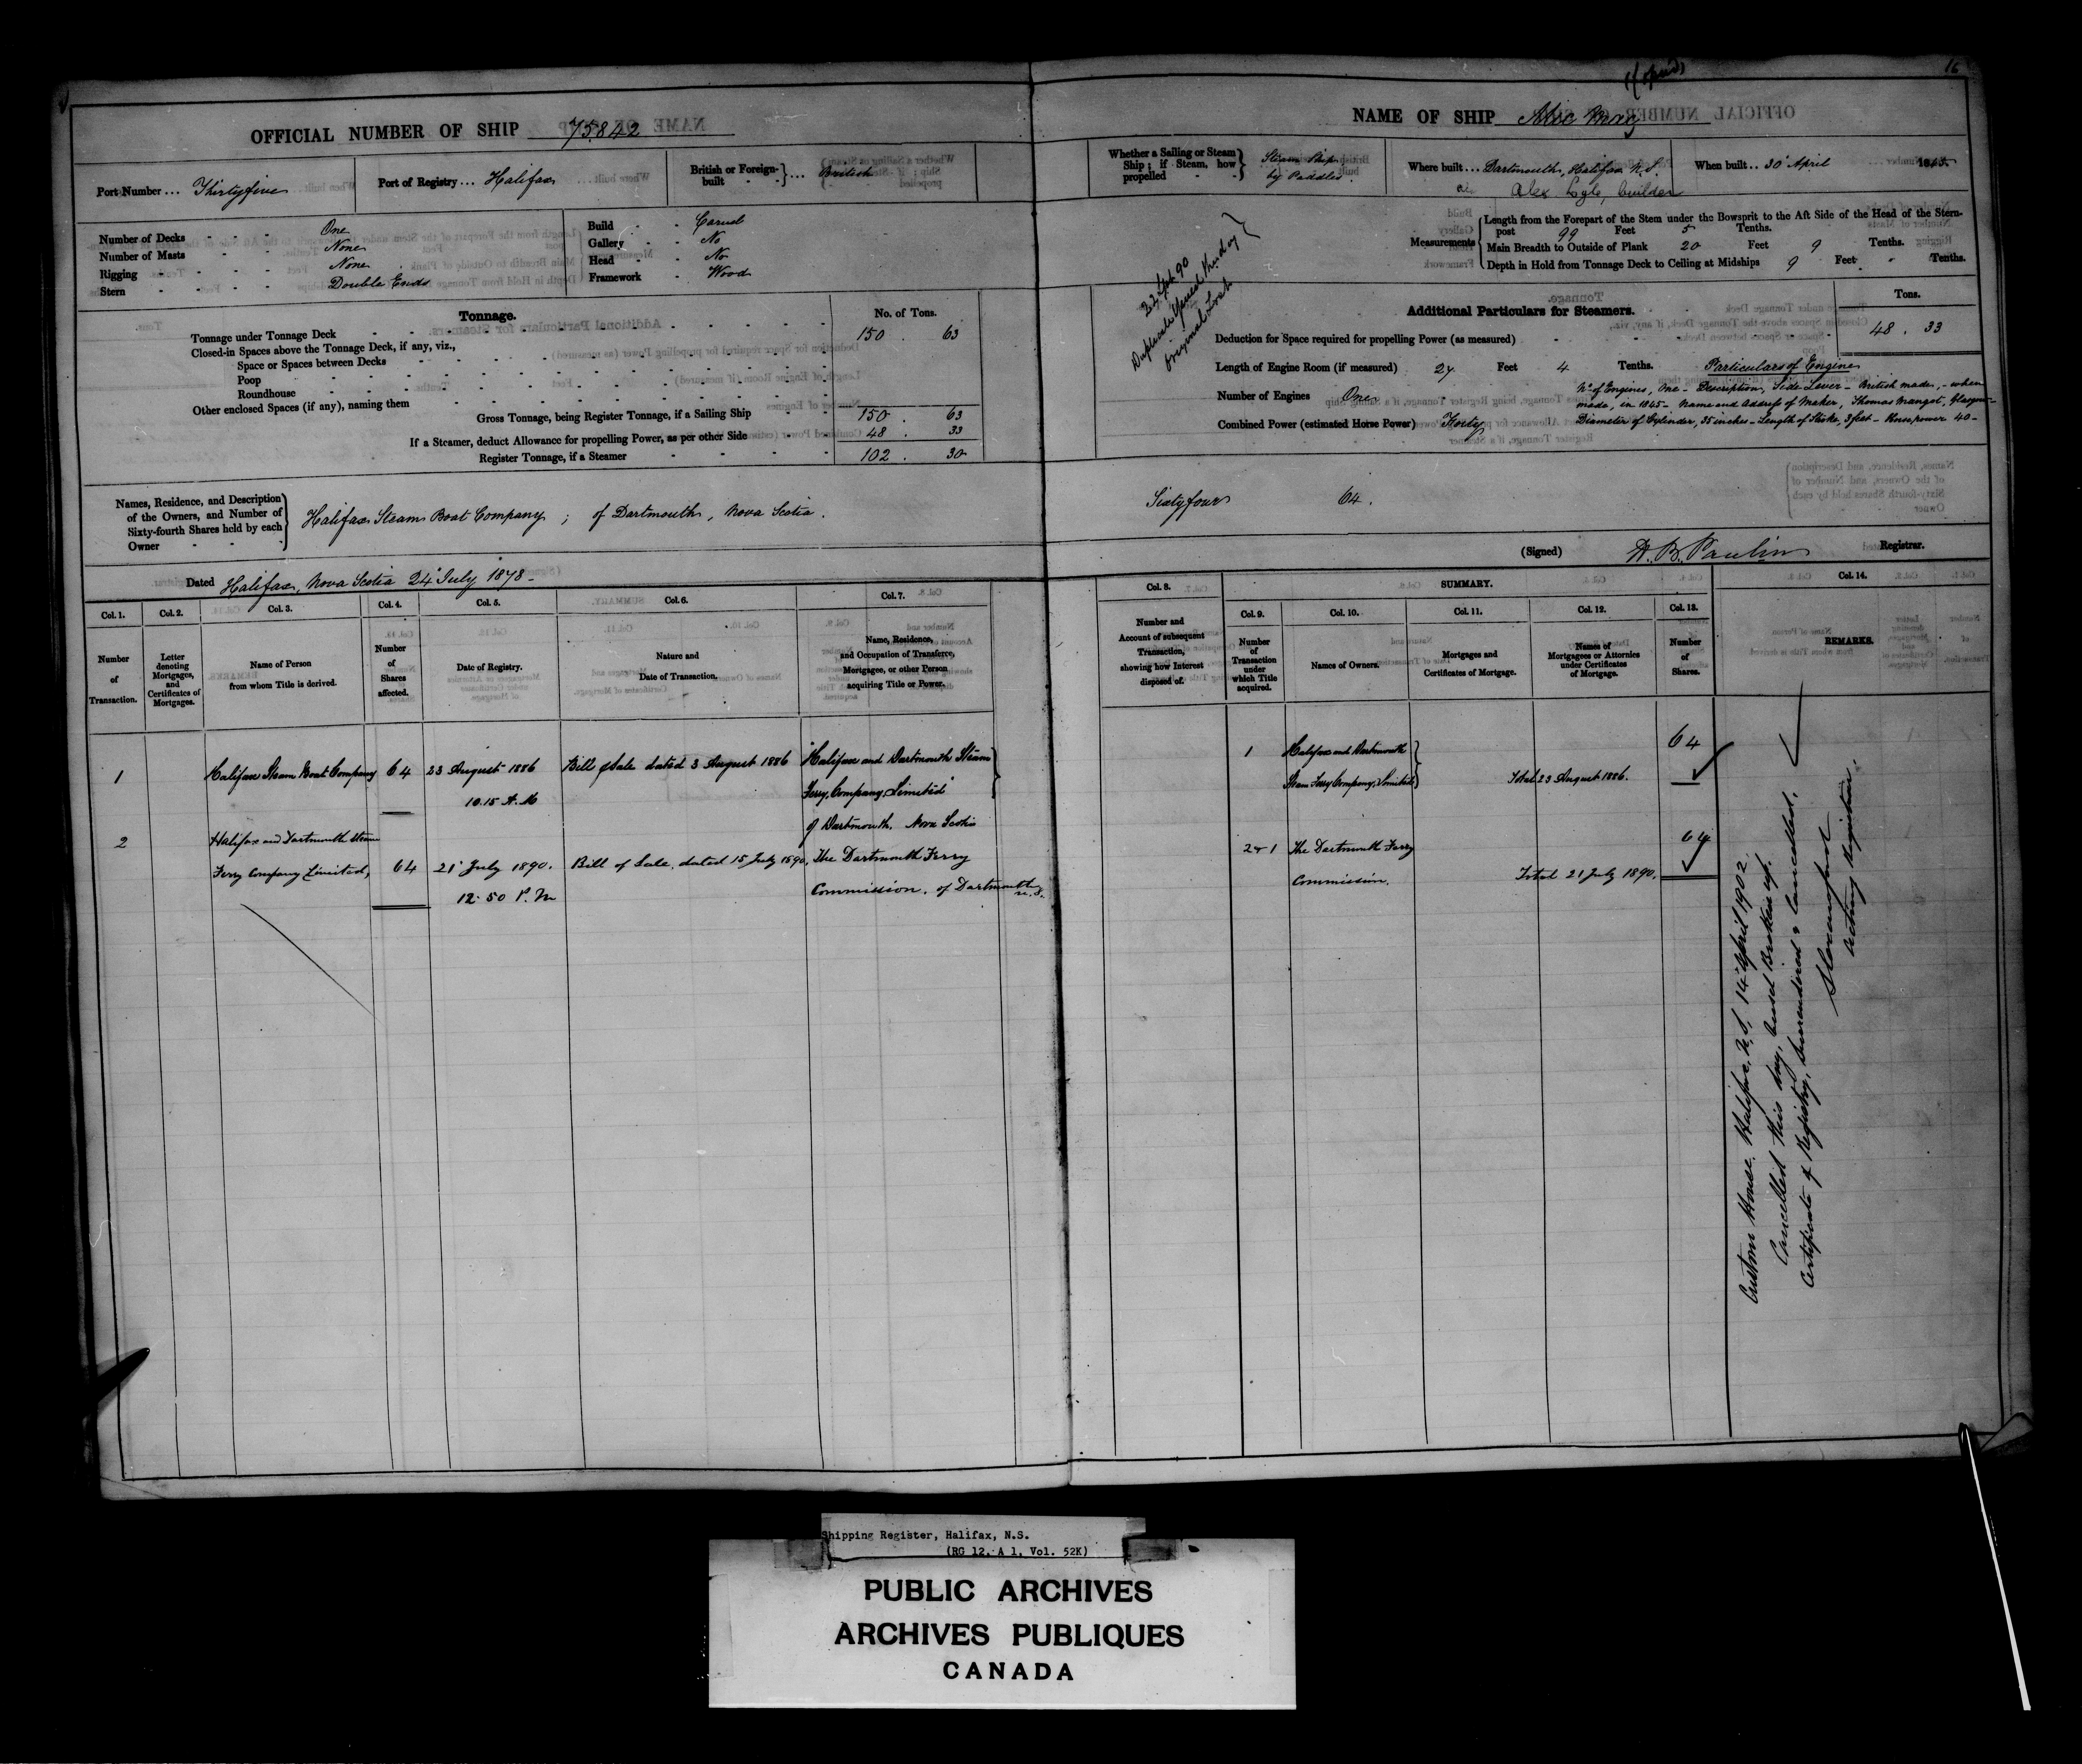 16
OFFICIAL NUMBER OF SHIP 75842
NAME OF SHIP
Port Number ... Thirtyfive
Port of Registry ... Halifax
British or Foreign-built ... British
Whether a Sailing or Steam Ship; if Steam, how propelled
Steam Ship
by Paddles
Where built ... Dartmouth, Halifax N.S.
When built .. 30 April 1845
Alex Lyle, builder
Number of Decks One
Number of Masts None
Rigging None
Stern Double Ends
Build Carvel
Gallery No
Head No
Framework Wood
Measurements
Length from the Forepart of the Stem under the Bowsprit to the Aft Side of the Head of the Stern-
post 99 Feet 5 Tenths.
Main Breadth to Outside of Plank 20 Feet 9 Tenths.
Depth in Hold from Tonnage Deck to Ceiling at Midships 9 Feet " Tenths.
Tonnage. No. of Tons.
Tonnage under Tonnage Deck 150 . 63
Closed-in Spaces above the Tonnage Deck, if any, viz.,
Space or Spaces between Decks
Poop
Roundhouse
Other enclosed Spaces (if any), naming them
Gross Tonnage, being Register Tonnage, if a Sailing Ship 150 . 63
If a Steamer, deduct Allowance for propelling Power, as per other Side 48 . 33
Register Tonnage, if a Steamer 102 . 30
22 Sept 90
Duplicate
original Lost
Additional Particulars for Steamers.
Tons.
Deduction for Space required for propelling Power (as measured) 48 . 33
Length of Engine Room (if measured) 27 Feet 4 Tenths.
Number of Engines One
Combined Power (estimated Horse Power) Forty
Particulars of Engine
No of Engines, One - Description, Side Lever - British made, - when
made, in 1845 - Name and Address of Maker, Thomas Wangot, Glasgow -
Diameter of Cylinder, 35 inches - Length of Stroke, 3 feet - Horsepower 40 -
Names, Residence, and Description
of the Owners, and Number of
Sixty-fourth Shares held by each
Owner
Halifax Steam Boat Company ; of Dartmouth, Nova Scotia.
Sixtyfour 64.
(Signed) H. B. Paulin Registrar.
Dated Halifax, Nova Scotia 24 July 1878 -
Col. 1. Col. 2. Col. 3. Col. 4. Col. 5. Col. 6. Col. 7.
Number of Transaction.
Letter denoting Mortgages, and Certificates of Mortgages.
Name of Person from whom Title is derived.
Number of Shares affected.
Date of Registry.
Nature and Date of Transaction.
Name, Residence, and Occupation of Transferee, Mortgagee, or other Person acquiring Title or Power.
1 Halifax Steam Boat Company 64 23 August 1886 Bill of Sale dated 3 August 1886 Halifax and Dartmouth Steam
10.15 A.M Ferry Company Limited
of Dartmouth. Nova Scotia
2 Halifax and Dartmouth Steam
Ferry Company Limited, 64 21 July 1890. Bill of Sale, dated 15 July 1890, The Dartmouth Ferry
12.50 P.M Commission, of Dartmouth N.S.
Col. 8. SUMMARY. Col. 14.
Col. 9. Col. 10. Col. 11. Col. 12. Col. 13.
Number and Account of subsequent Transaction, showing how Interest disposed of.
Number of Transaction under which Title acquired.
Names of Owners.
Mortgages and Certificates of Mortgage.
Names of Mortgagees or Attornies under Certificates of Mortgage.
Number of Shares.
REMARKS.
1 Halifax and Dartmouth 64
Steam Ferry Company, Limited Total 23 August 1886.
2 & 1 The Dartmouth Ferry 64
Commission. Total 21 July 1890.
Custom House. Halifax, N.S. 14 April 1902.
Cancelled this day, Vessel Broken up.
Certificate of Registry, surrendered & Cancelled.
Acting Registrar.
Shipping Register, Halifax, N.S.
(RG 12, A 1, Vol. 52K)
PUBLIC ARCHIVES
ARCHIVES PUBLIQUES
CANADA